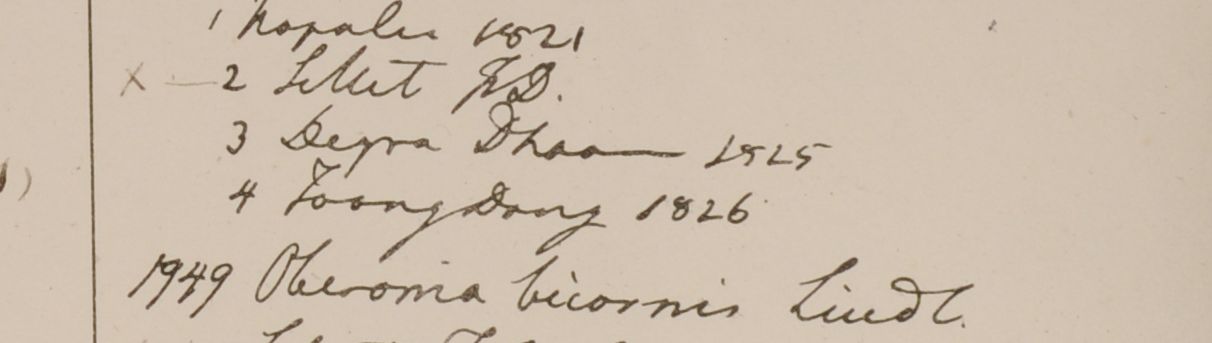 1 Napalia 1821
x — 2 Sillet F.D.
3 Deyra Dhoon 1825
4 Toong Dong 1826
1949 Oberonia bicornis Lindl.